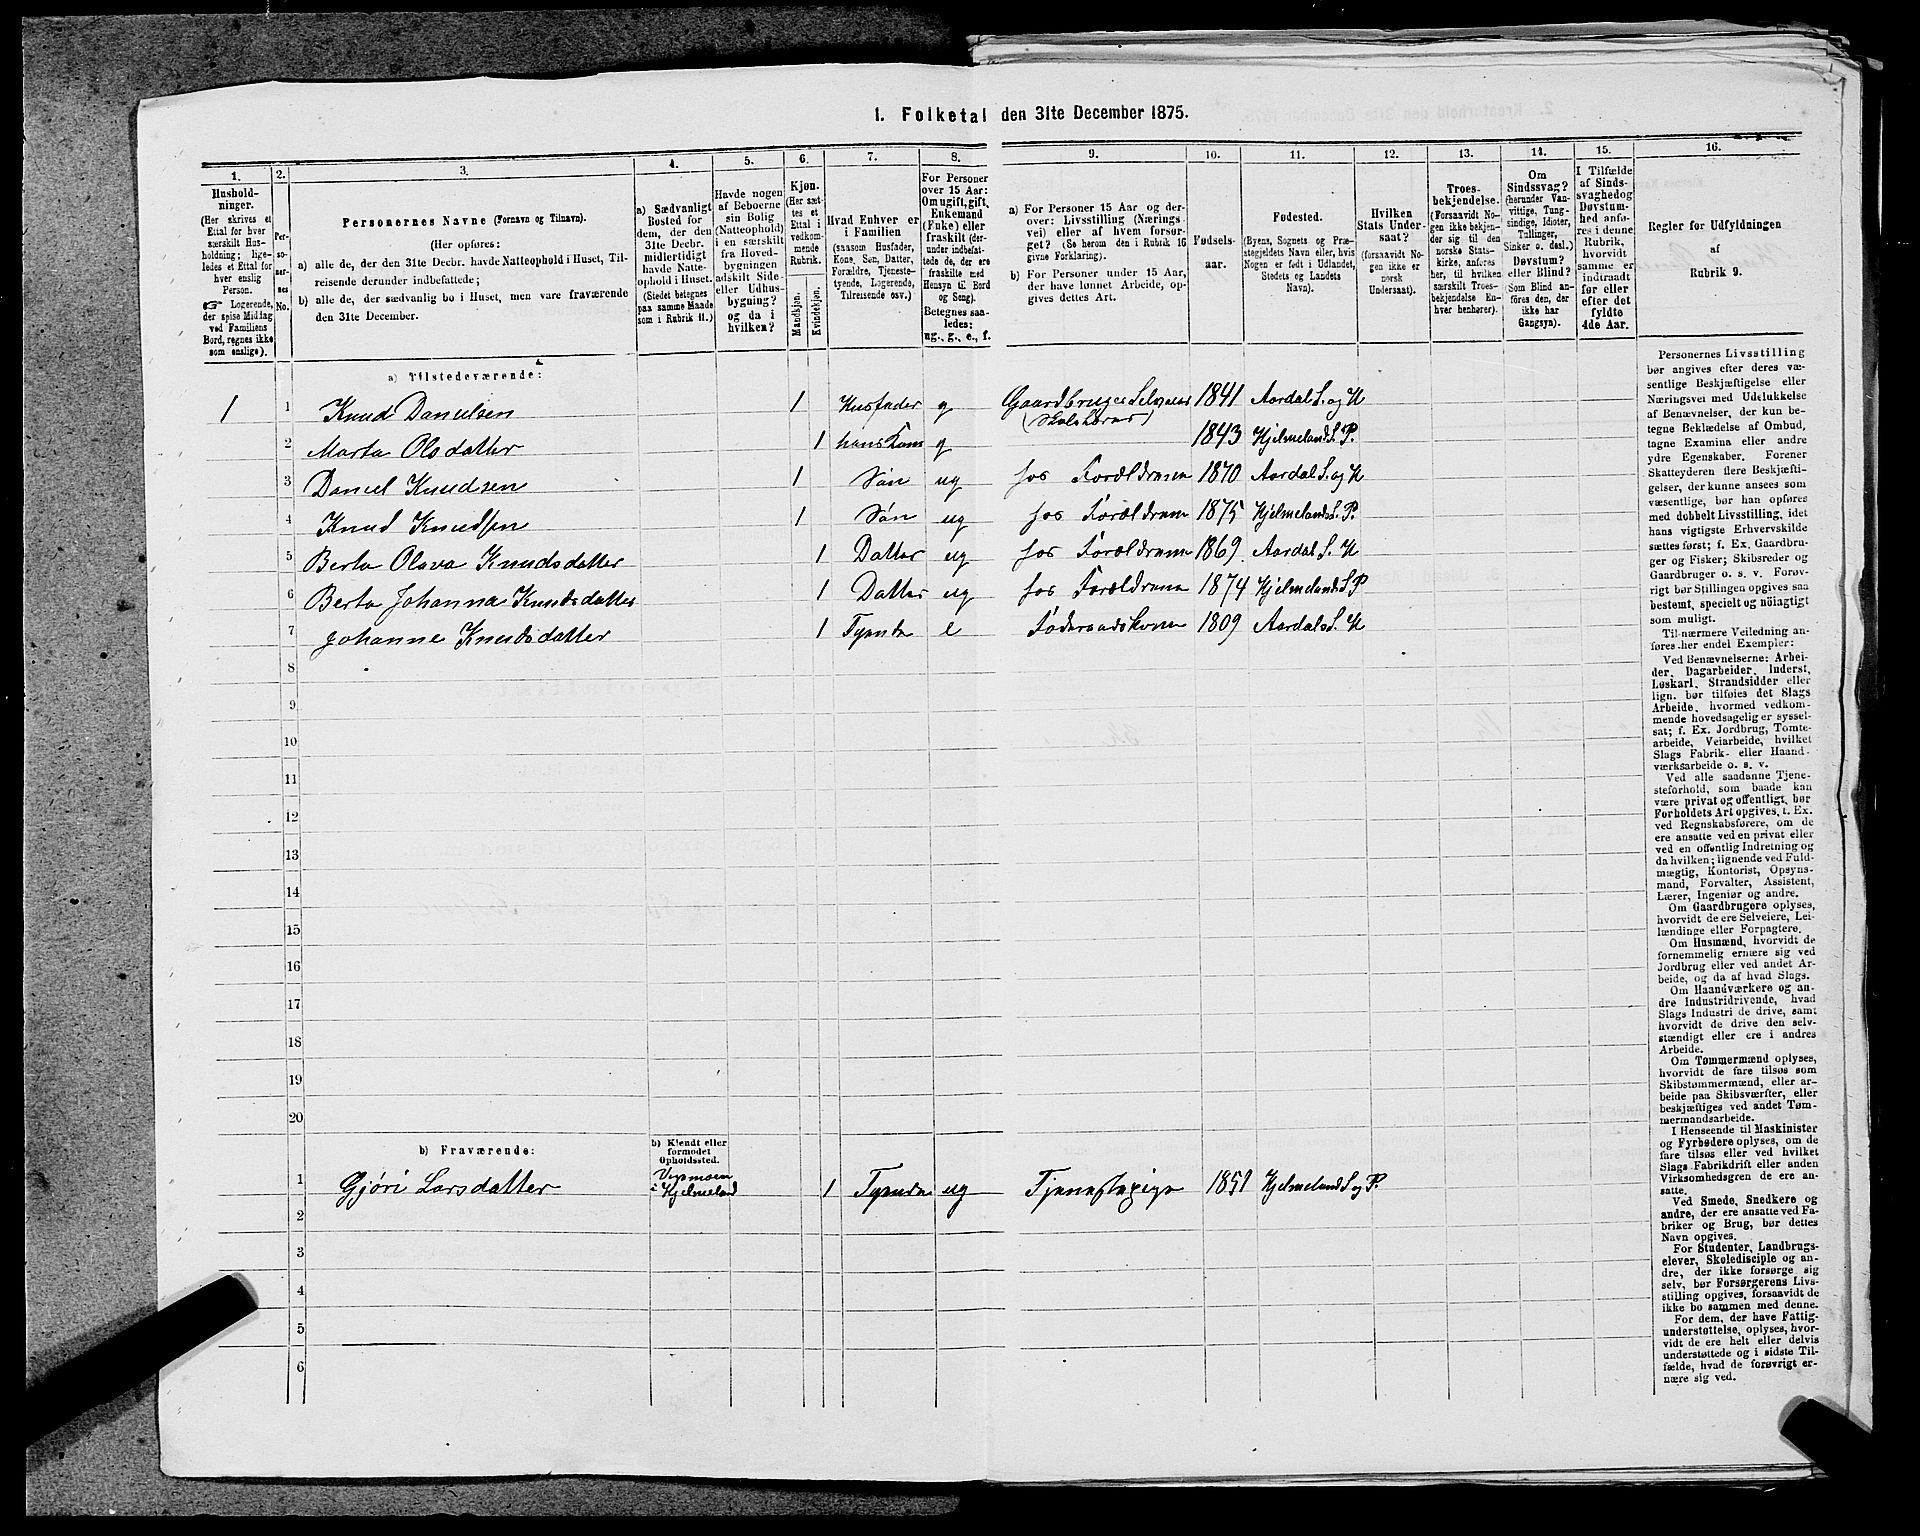 1. Folketal den 31te December 1875.
1. 2. 3. 4. 5. 6. 7. 8. 9. 10. 11. 12. 13. 14. 15. 16.
Hushold-
ninger.
(Her skrives et
Ettal for hver
særskilt Hus-
holdning; lige-
ledes et Ettal for
hver enslig
Person.
☞ Logerende,
der spise Middag
ved Familiens
Bord, regnes ikke
som enslige).
Per-
so-
ner-
nes
No.
Personernes Navne (Fornavn og Tilnavn).
(Her opføres:
a) alle de, der den 31te Decbr. havde Natteophold i Huset, Til-
reisende derunder indbefattede;
b) alle de, der sædvanlig bo i Huset, men vare fraværende
den 31te December.
a) Sædvanligt
Bosted for
dem, der den
31te Decbr.
midlertidigt
havde Natte-
ophold i Huset.
(Stedet betegnes
paa samme Maade
som i Rubrik 11.)
Havde nogen
af Beboerne
sin Bolig
(Natteophold)
i en særskilt
fra Hoved-
bygningen
adskilt Side-
eller Udhus-
bygning?
og da i
hvilken?
Kjøn.
(Her sæt-
tes et
Ettal i
vedkom-
mende
Rubrik.
Mandkjøn.
Kvindekjøn.
Hvad Enhver er
i Familien
(saasom Husfader,
Kone, Søn, Datter,
Forældre, Tjeneste-
tyende, Logerende,
Tilreisende osv.)
For Personer
over 15 Aar:
Om ugift, gift,
Enkemand
(Enke) eller
fraskilt (der-
under indbefat-
tede de, der ere
fraskilte med
Hensyn til Bord
og Seng).
Betegnes saa-
ledes:
ug., g., e., f.
a) For Personer 15 Aar og der-
over: Livsstilling (Nærings-
vei) eller af hvem forsør-
get? (Se herom den i Rubrik 16
givne Forklaring).
b) For Personer under 15 Aar,
der have lønnet Arbeide, op-
gives dettes Art.
Fødsels-
aar.
Fødested.
(Byens, Sognets og Præ-
stegjeldets Navn eller, hvis
Nogen er født i Udlandet,
Stedets og Landets
Navn).
Hvilken
Stats Under-
saat?
(forsaavidt No-
gen ikke er
norsk
Undersaat).
Troes-
bekjendelse.
(Forsaavidt No-
gen ikke bekjen-
der sig til den
norske Stats-
kirke, anføres
her, til hvilken
særskilt Troes-
bekjendelse En-
hver henhører).
Om
Sindssvag?
(herunder Van-
vittige, Tung-
sindige, Idioter,
Tullinger,
Sinker o. desl.)
Døvstum?
eller Blind?
(Som Blind an-
føres den, der
ikke har
Gangsyn).
I Tilfælde
af Sinds-
svaghed og
Døvstum-
hed anfø-
res i denne
Rubrik,
hvorvidt
samme er
indtraadt
før eller
efter det
fyldte
4de Aar.
Regler for Udfyldningen
af
Rubrik 9.
a) Tilstedeværende:
1 1 Knud Danielsen 1 Husfader g Gaardbruger Selveier 1841 Aardal S. og K
2 Marta Olsdatter 1 hans Kone g 1843 Hjelmeland S. P.
3 Daniel Knudsen 1 Søn ug hos Forældrene 1870 Aardal S. og K
4 Knud Knudsen 1 Søn ug hos Forældrene 1875 Hjelmelands S. P.
5 Berta Olava Knudsdatter 1 Datter ug hos Forældrene 1869 Aardal S. K
6 Berta Johanna Knudsdatter 1 Datter ug hos Forældrene 1874 Hjelmeland S P
7 Johanne Knudsdatter 1 Tyende e Føderaadskone 1809 Aardals S. K
8
9
10
11
12
13
14
15
16
17
18
19
20
b) Fraværende:
b) Kjendt eller
formodet
Opholdssted.
1 Gjøri Larsdatter i Hjelmeland 1 Tyende ug Tjenestepige 1851 Hjelmeland S og P.
2
3
4
5
6
Personernes Livsstilling
bør angives efter deres væ-
sentlige Beskjæftigelse eller
Næringsvei med Udelukkelse
af Benævnelser, der kun be-
tegne Beklædelse af Ombud,
tagne Examina eller andre
ydre Egenskaber. Forener
Skatteyderen flere Beskjæfti-
gelser, der kunne ansees som
væsentlige, bør han opføres
med dobbelt Livsstilling, idet
hans vigtigste Erhvervskilde
sættes først; f. Ex. Gaardbru-
ger og Fisker; Skibsreder og
Gaardbruger o. s. v. Forøv-
rigt bør Stillingen opgives saa
bestemt, specielt og nøiagtigt
som muligt.
Til nærmere Veiledning an-
føres her endel Exempler:
Ved Benævnelserne: Arbei-
der, Dagarbeider, Inderst,
Løskarl, Strandsidder eller
lign. bør tilføies det Slags
Arbeide, hvormed vedkom-
mende hovedsagelig er syssel-
sat; f. Ex. Jordbrug, Tomte-
arbeide, Veiarbeide, hvilket
Slags Fabrik- eller Haand-
værksarbeide o. s. v.
Ved alle saadanne Tjene-
steforhold, som baade kan
være privat og offentligt, bør
Forholdets Art opgives, t. Ex.
ved Regnskabsførere, om de
ere ansatte ved en privat eller
ved en offentlig Indretning og
da hvilken; lignende ved Fuld-
mægtig, Kontorist, Opsyns-
mand, Forvalter, Assistent,
Lærer, Ingeniør og andre.
Om Gaardbrugere oplyses,
hvorvidt de ere Selveiere, Lei-
lændinge eller Forpagtere.
Om Husmænd, hvorvidt de
fornemmelig ernære sig ved
Jordbrug eller ved andet Ar-
beide, og da af hvad Slags.
Om Haandværkere og an-
dre Industridrivende, hvad
Slags Industri de drive, samt
hvorvidt de drive den selv-
stændigt eller ere i andres
Arbeide.
Om Tømmermænd oplyses,
hvorvidt de fare tilsøs som
Skibstømmermænd, eller ar-
beide paa Skibsværfter, eller
beskjæftiges ved andet Tøm-
mermandsarbeide.
I Henseende til Maskinister
og Fyrbødere oplyses, om de
fare tilsøs eller ved hvilket
Slags Fabrikdrift eller anden
Virksomhedsgren de ere an-
satte.
Ved Smede, Snedkere og
andre, der ere ansatte ved Fa-
briker og Brug, bør dettes
Navn opgives.
For Studenter, Landbrugs-
elever, Skoledisciple og an-
dre, der ikke forsørge sig
selv, bør Forsørgerens Livs-
stilling opgives, forsaavidt de
ikke bo sammen med denne.
For dem, der have Fattig-
understøttelse, oplyses, hvor-
vidt de ere helt eller delvis
understøttede og i sidste Til-
fælde, hvad de forøvrigt er-
nære sig ved.